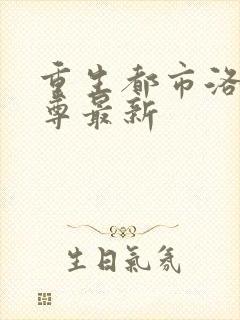 重生都市洛
尊最新
生日氣氛